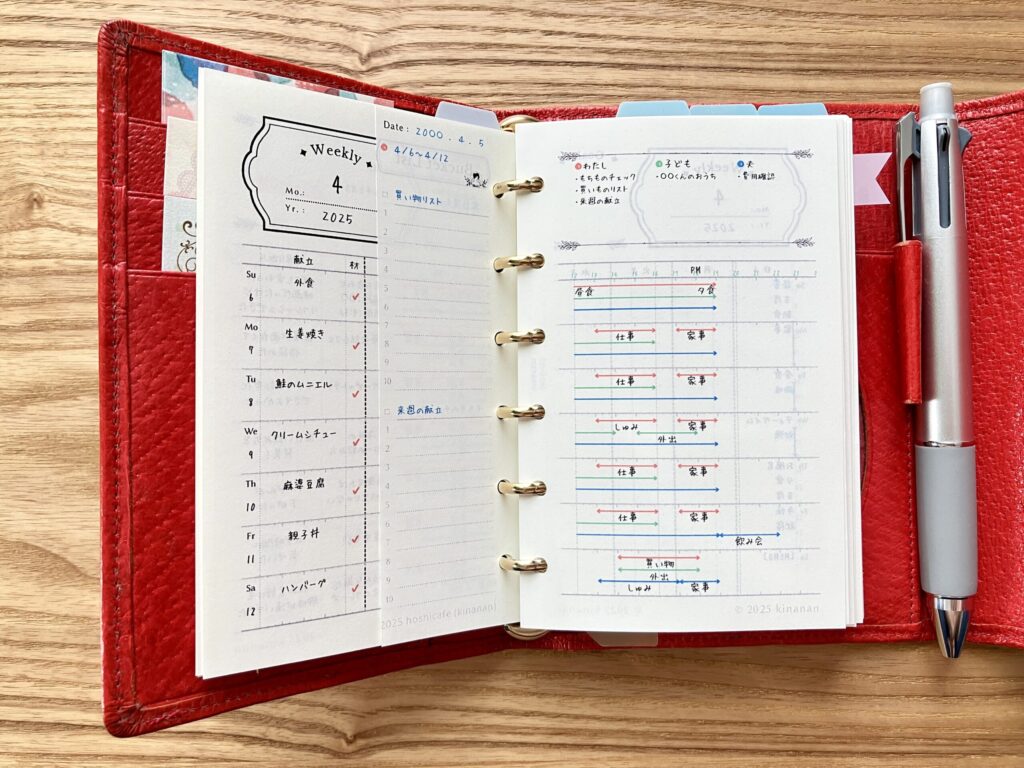 Weekly
Mo.: 4
Yr.: 2025
献立 材
Su 6 外食 ✓
Mo 7 生姜焼き ✓
Tu 8 鮭のムニエル ✓
We 9 クリームシチュー ✓
Th 10 麻婆豆腐 ✓
Fr 11 親子丼 ✓
Sa 12 ハンバーグ ✓
Date: 2000.4.5
4/6~4/12
買い物リスト
1
2
3
4
5
6
7
8
9
10
来週の献立
1
2
3
4
5
6
7
8
9
10
2025 hoshicafe (kinanan)
わたし 子ども 夫
・もちものチェック ・〇〇くんのおうち ・費用確認
・買いものリスト
・来週の献立
PM
昼食 夕食
仕事 家事
仕事 家事
しゅみ 家事
外出
仕事 家事
仕事 家事
飲み会
買い物
外出
しゅみ 家事
© 2025 kinanan